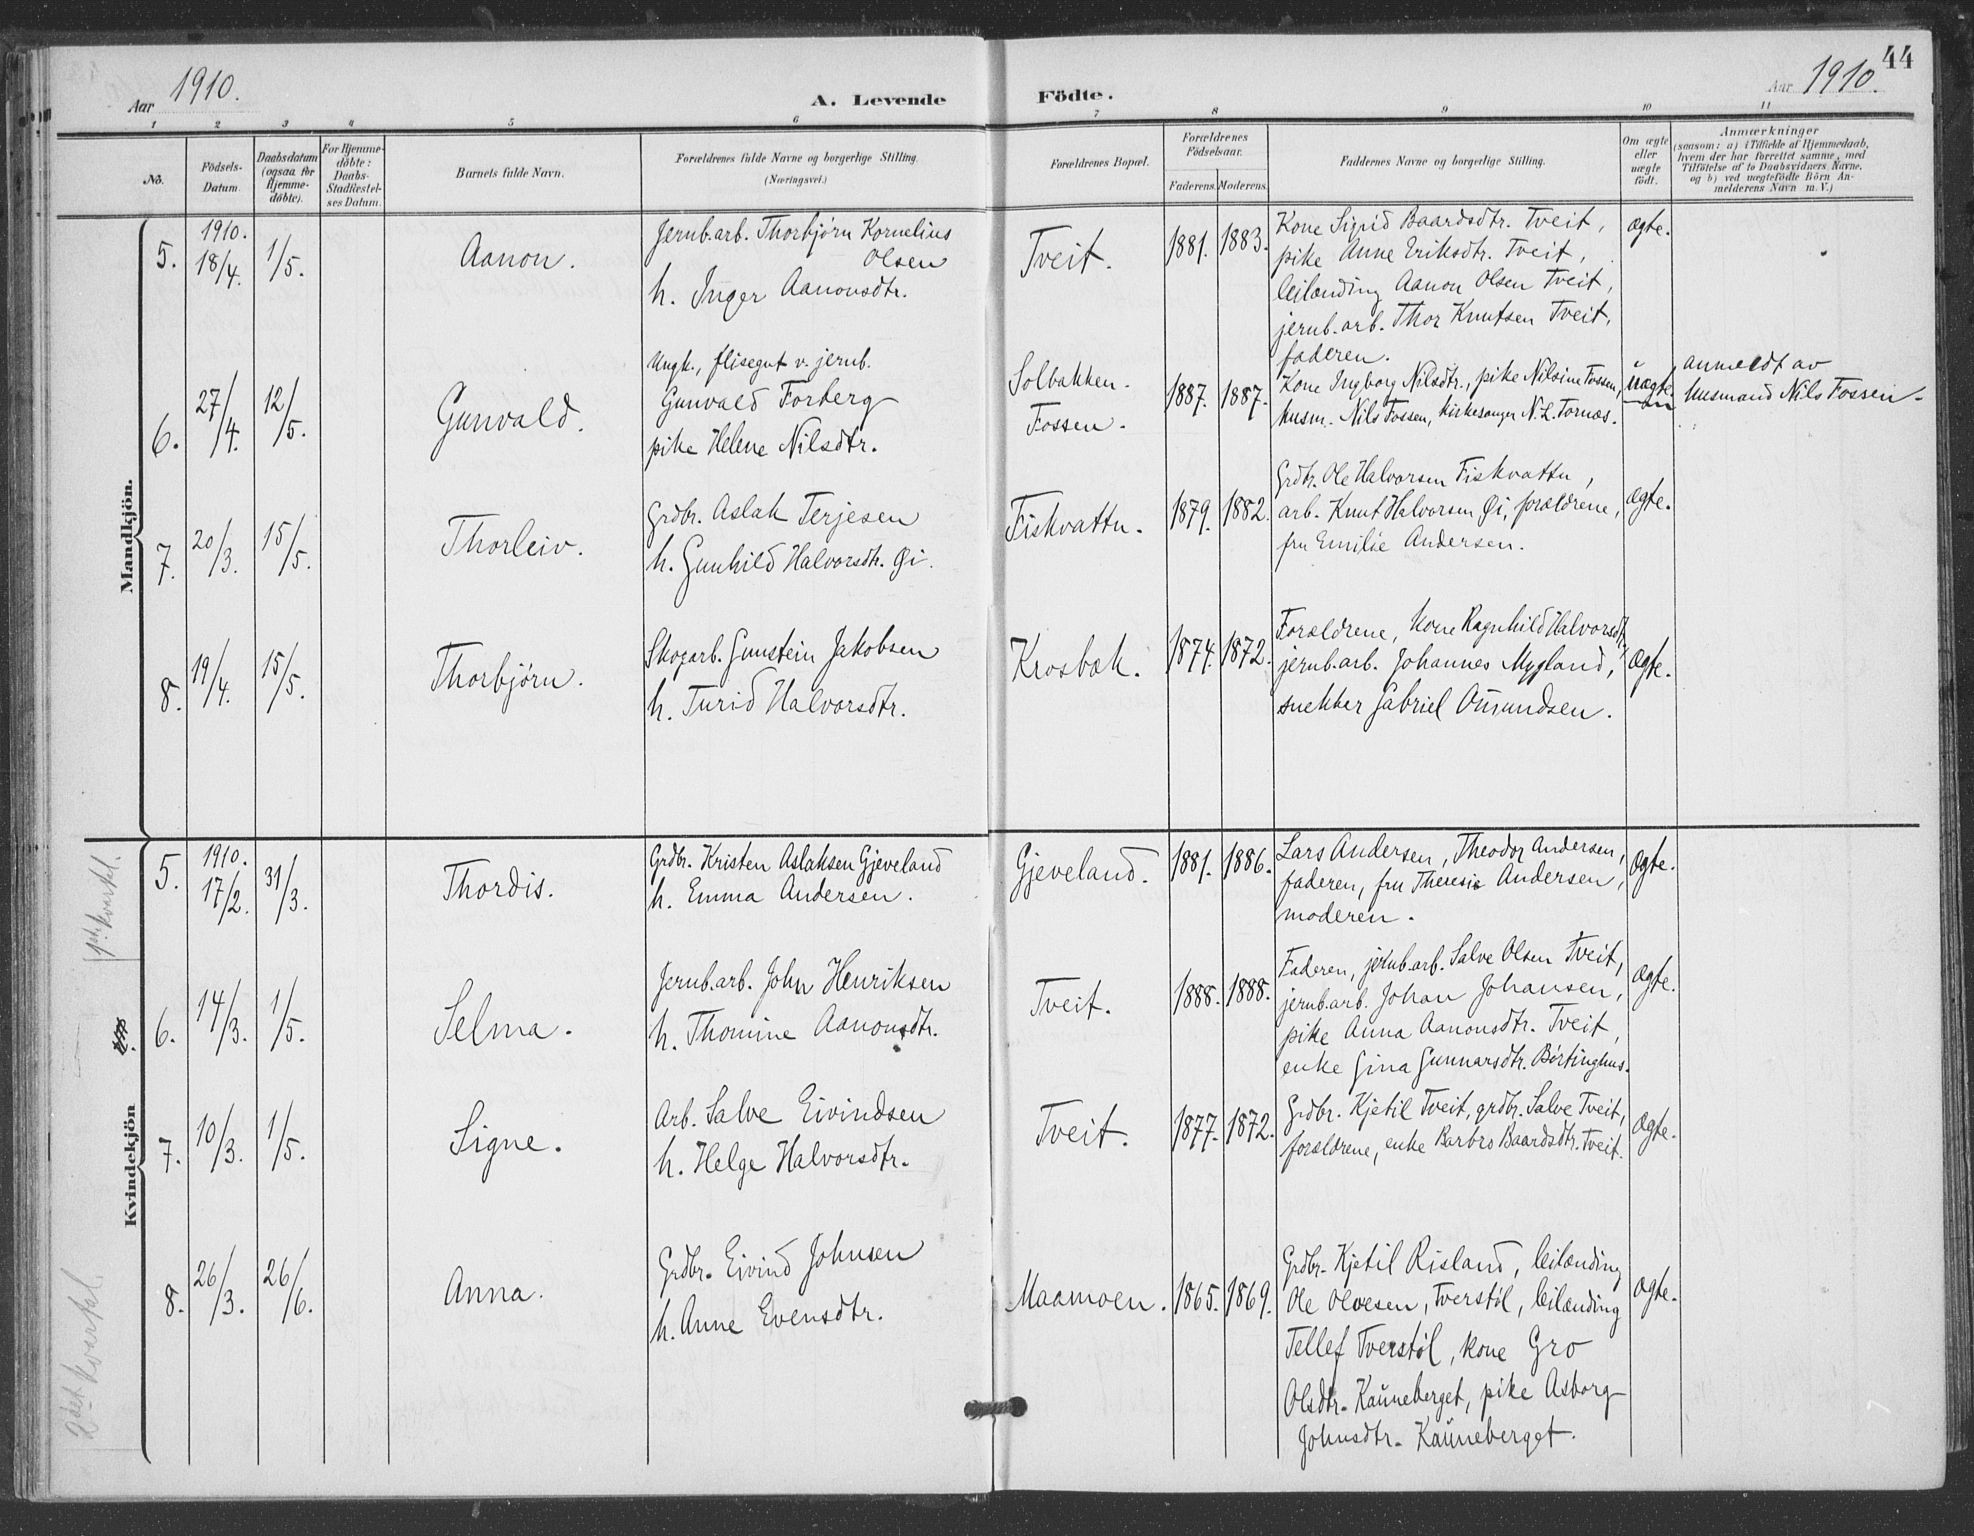 44
Aar 1910.
A. Levende Födte.
Aar 1910.
1 2 3 4 5 6 7 8 9 10 11
No.
Födsels-
Datum.
Daabsdatum
(ogsaa for
Hjemme-
döbte).
For Hjemme-
döbte:
Daabs-
Stadfæstel-
ses Datum.
Barnets fulde Navn.
Forældrenes fulde Navne og borgerlige Stilling.
(Næringsvei.)
Forældrenes Bopæl.
Forældrenes
Födselsaar.
Faderens. Moderens.
Faddernes Navne og borgerlige Stilling.
Om ægte
eller
uægte
födt.
Anmærkninger
(saasom: a) i Tilfælde af Hjemmedaab,
hvem der har forrettet samme, med
Tilföielse af to Daabsvidners Navne,
og b) ved uægtefödte Börn An-
melderens Navn m. V.)
Mandkjön.
5.
1910.
18/4.
1/5.
Aanon.
Jernb.arb. Thorbjørn Kornelius
Olsen
h. Inger Aanonsdtr.
Tveit.
1881. 1883.
Kone Sigrid Baardsdtr. Tveit,
pike Anne Eriksdtr. Tveit,
leilænding Aanon Olsen Tveit,
jernb.arb. Thor Knutsen Tveit,
faderen.
ægte.
6.
27/4.
12/5.
Gunvald.
Ungk., flisegut v. jernb.
Gunvald Forberg
pike Helene Nilsdtr.
Solbakken.
Fossen.
1887. 1887.
Kone Ingborg Nilsdtr., pike Nilsine Fossen,
husm. Nils Fossen, kirkesanger N. L. Tornæs.
uægte.
anmeldt av
husmand Nils Fossen.
7.
20/3.
15/5.
Thorleiv.
Grdbr. Aslak Terjesen
h. Gunhild Halvorsdtr. Øi.
Fiskvattn.
1879. 1882.
Grdbr. Ole Halvorsen Fiskvattn,
arb. Knut Halvorsen Øi, forældrene,
fru Emilie Andersen.
ægte.
8.
19/4.
15/5.
Thorbjørn.
Skogarb. Gunstein Jakobsen
h. Turid Halvorsdtr.
Krosbæk.
1874. 1872.
Forældrene, kone Ragnhild Halvorsdtr,
jernb.arb. Johannes Mygland,
snekker Gabriel Omundsen.
ægte.
Kvindekjön
1ste kvartal.
5.
1910.
17/2.
31/3.
Thordis.
Grdbr. Kristen Aslaksen Gjeveland
h. Emma Andersen.
Gjeveland.
1881. 1886.
Lars Andersen, Theodor Andersen,
faderen, fru Theresie Andersen,
moderen.
ægte.
6.
14/3.
1/5.
Selma.
Jernb.arb. John Henriksen
h. Thomine Aanonsdtr.
Tveit.
1888. 1888.
Faderen, jernb.arb. Salve Olsen Tveit,
jernb.arb. Johan Johansen,
pike Anna Aanonsdtr. Tveit,
enke Gina Gunnarsdtr. Børtinghus.
ægte.
7.
10/3.
1/5.
Signe.
Arb. Salve Eivindsen
h. Helge Halvorsdtr.
Tveit.
1877. 1872.
Grdbr. Kjetil Tveit, grdbr. Salve Tveit,
forældrene, enke Barbro Baardsdtr. Tveit.
ægte.
2det kvartal
8.
26/3.
26/6.
Anna.
Grdbr. Eivind Johnsen
h. Anne Evensdtr.
Maamoen.
1865. 1869.
Grdbr. Kjetil Risland, leilænding
Ole Olvesen, Tverstøl, leilænding
Tellef Tverstøl, kone Gro
Olsdtr. Kaŭneberget, pike Asborg
Johnsdtr. Kaŭneberget.
ægte.